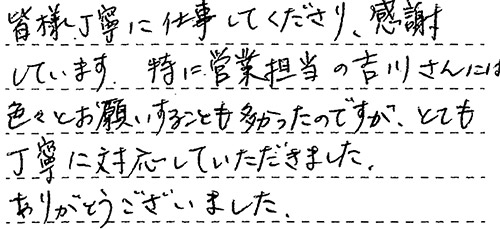 皆様丁寧に仕事してくださり、感謝
しています。特に営業担当の吉川さんには
色々とお願いすることも多かったのですが、とても
丁寧に対応していただきました。
ありがとうございました。